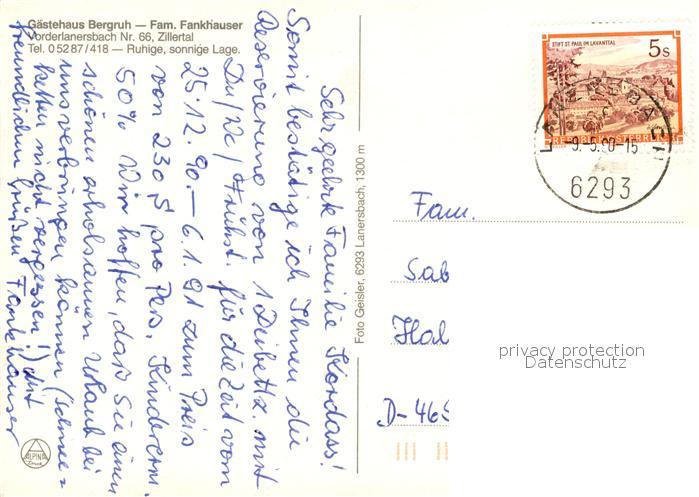 Gästehaus Bergruh — Fam. Fankhauser
Vorderlanersbach Nr. 66, Zillertal
Tel. 0 52 87 / 418 — Ruhige, sonnige Lage.
Sehr geehrte Familie Kordass!
Somit bestätige ich Ihnen die
Reservierung von 1 Zweibettz. mit
Du/Wc/Frühst. für die Zeit vom
25.12.90.–6.1.91 zum Preis
von 230 S pro Pers. Kindererm.
50% Wir hoffen, daß Sie einen
schönen erholsamen Urlaub bei
uns verbringen können (Schnee=
ketten nicht vergessen!) Mit
freundlichen Grüßen Fankhauser
ALPINA
Foto Geisler, 6293 Lanersbach, 1300 m
STIFT ST. PAUL IM LAVANTTAL
5s
REPUBLIK ÖSTERREICH
LANERSBACH
-9.-5.90-15
6293
Fam.
Sab
Hal
D-465
privacy protection
Datenschutz